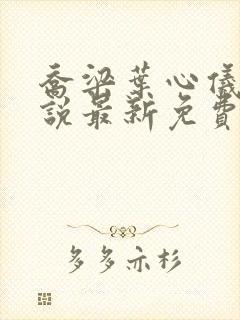 喬梁葉心儀
說最新免費
多多亦杉